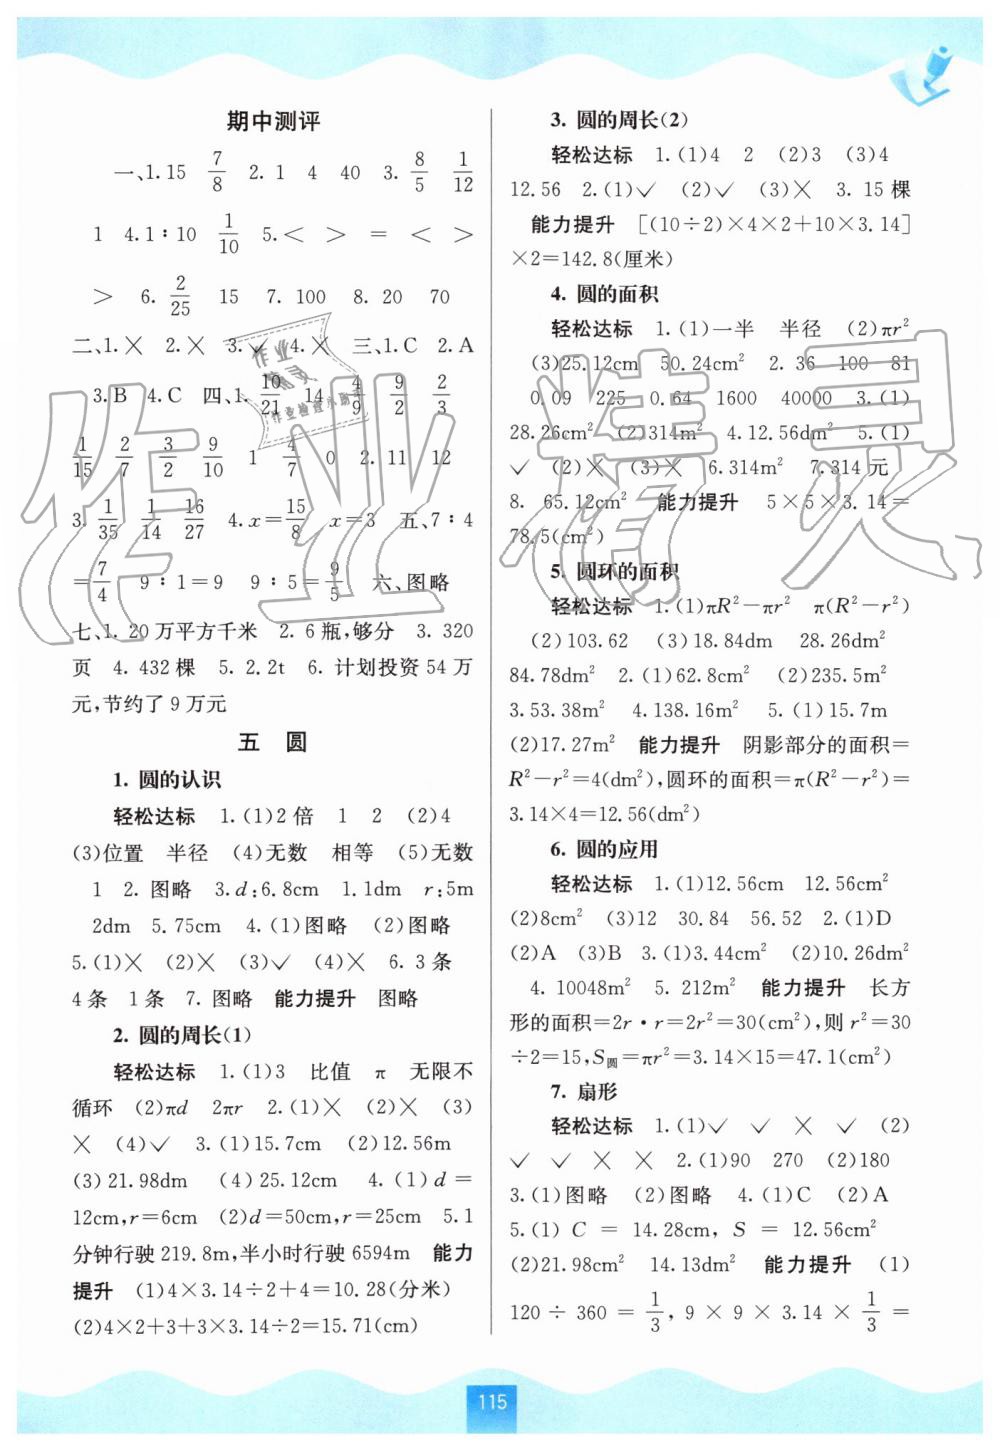 期中测评
一、1.15 7/8 2. 1 4 40 3. 8/5 1/12
1 4.1∶10 1/10 5.< > = < >
> 6. 2/25 15 7. 100 8. 20 70
二、1.× 2.× 3.✓ 4.× 三、1.C 2.A
3.B 4.C 四、1. 10/21 14 4/9 9/2 2/3
1/15 2/7 3/2 9/10 1 4/7 0 2.11 12
3. 1/35 1/14 16/27 4.x=15/8 x=3 五、7∶4
=7/4 9∶1=9 9∶5=9/5 六、图略
七、1. 20万平方千米 2. 6瓶,够分 3. 320
页 4. 432棵 5. 2.2t 6. 计划投资54万
元,节约了9万元
五 圆
1. 圆的认识
轻松达标 1.(1)2倍 1 2 (2)4
(3)位置 半径 (4)无数 相等 (5)无数
1 2. 图略 3.d:6.8cm 1.1dm r:5m
2dm 5.75cm 4.(1)图略 (2)图略
5.(1)× (2)× (3)✓ (4)× 6. 3条
4条 1条 7. 图略 能力提升 图略
2. 圆的周长(1)
轻松达标 1.(1)3 比值 π 无限不
循环 (2)πd 2πr 2.(1)× (2)× (3)
× (4)✓ 3.(1)15.7cm (2)12.56m
(3)21.98dm (4)25.12cm 4.(1)d=
12cm,r=6cm (2)d=50cm,r=25cm 5.1
分钟行驶219.8m,半小时行驶6594m 能力
提升 (1)4×3.14÷2+4=10.28(分米)
(2)4×2+3+3×3.14÷2=15.71(cm)
3. 圆的周长(2)
轻松达标 1.(1)4 2 (2)3 (3)4
12.56 2.(1)✓ (2)✓ (3)× 3. 15棵
能力提升 [(10÷2)×4×2+10×3.14]
×2=142.8(厘米)
4. 圆的面积
轻松达标 1.(1)一半 半径 (2)πr²
(3)25.12cm 50.24cm² 2. 36 100 81
0.09 225 0.64 1600 40000 3.(1)
28.26cm² (2)314m² 4.12.56dm² 5.(1)
✓ (2)× (3)× 6.314m² 7.314元
8. 65.12cm² 能力提升 5×5×3.14=
78.5(cm²)
5. 圆环的面积
轻松达标 1.(1)πR²-πr² π(R²-r²)
(2)103.62 (3)18.84dm 28.26dm²
84.78dm² 2.(1)62.8cm² (2)235.5m²
3.53.38m² 4.138.16m² 5.(1)15.7m
(2)17.27m² 能力提升 阴影部分的面积=
R²-r²=4(dm²),圆环的面积=π(R²-r²)=
3.14×4=12.56(dm²)
6. 圆的应用
轻松达标 1.(1)12.56cm 12.56cm²
(2)8cm² (3)12 30.84 56.52 2.(1)D
(2)A (3)B 3.(1)3.44cm² (2)10.26dm²
4. 10048m² 5. 212m² 能力提升 长方
形的面积=2r·r=2r²=30(cm²),则r²=30
÷2=15,S圆=πr²=3.14×15=47.1(cm²)
7. 扇形
轻松达标 1.(1)✓ ✓ × ✓ (2)
✓ ✓ × × 2.(1)90 270 (2)180
3.(1)图略 (2)图略 4.(1)C (2)A
5.(1) C = 14.28cm, S = 12.56cm²
(2)21.98cm² 14.13dm² 能力提升 (1)
120÷360=1/3, 9×9×3.14×1/3=
115
作业精灵